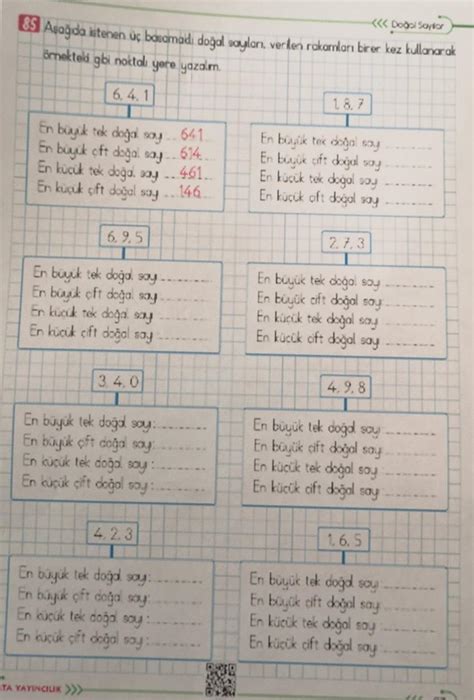 85 Aşağıda istenen üç basamaklı doğal sayıları, verilen rakamları birer kez kullanarak
örnekteki gibi noktalı yere yazalım.
<<< Doğal Sayılar
6, 4, 1
En büyük tek doğal sayı ...641...
En büyük çift doğal sayı ...614...
En küçük tek doğal sayı ...461...
En küçük çift doğal sayı ...146...
1, 8, 7
En büyük tek doğal sayı ..........
En büyük çift doğal sayı ..........
En küçük tek doğal sayı ..........
En küçük çift doğal sayı ..........
6, 9, 5
En büyük tek doğal sayı ..........
En büyük çift doğal sayı ..........
En küçük tek doğal sayı ..........
En küçük çift doğal sayı ..........
2, 7, 3
En büyük tek doğal sayı ..........
En büyük çift doğal sayı ..........
En küçük tek doğal sayı ..........
En küçük çift doğal sayı ..........
3, 4, 0
En büyük tek doğal sayı: ..........
En büyük çift doğal sayı: ..........
En küçük tek doğal sayı : ..........
En küçük çift doğal sayı : ..........
4, 9, 8
En büyük tek doğal sayı ..........
En büyük çift doğal sayı ..........
En küçük tek doğal sayı ..........
En küçük çift doğal sayı ..........
4, 2, 3
En büyük tek doğal sayı: ..........
En büyük çift doğal sayı: ..........
En küçük tek doğal sayı : ..........
En küçük çift doğal sayı : ..........
1, 6, 5
En büyük tek doğal sayı ..........
En büyük çift doğal sayı ..........
En küçük tek doğal sayı ..........
En küçük çift doğal sayı ..........
TA YAYINCILIK >>>